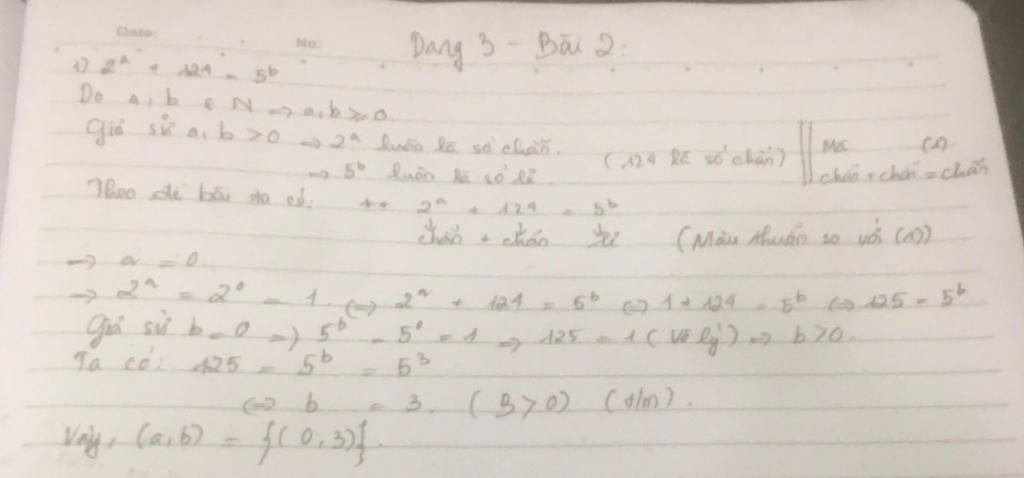 Date: No: Dạng 3 - Bài 2:
1) 2^a + 124 = 5^b
Do a, b ∈ N → a, b ≥ 0.
Giả sử a, b > 0 → 2^a luôn là số chẵn. (124 là số chẵn) || Mà (1)
→ 5^b luôn là số lẻ chẵn + chẵn = chẵn
Theo đề bài ta có: ** 2^a + 124 = 5^b
chẵn + chẵn lẻ (Mâu thuẫn so với (1))
→ a = 0.
→ 2^a = 2^0 = 1. ⇔ 2^a + 124 = 5^b ⇔ 1 + 124 = 5^b ⇔ 125 = 5^b
Giả sử b = 0 ⇒ 5^b = 5^0 = 1 ⇒ 125 = 1 (Vô lý) ⇒ b > 0.
Ta có: 125 = 5^b = 5^3
⇔ b = 3. (3 > 0) (t/m).
Vậy, (a, b) = {(0, 3)}.